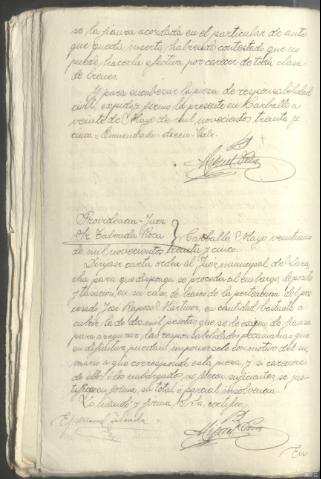 se la fianza acordada en el particular de auto
que queda inserto, habiendo contestado que no
puede hacerla efectiva por carecer de toda clase
de bienes.
Y para encabezar la pieza de responsabilidad
civil, expido y firmo la presente en Carballo a
veinte de Mayo de mil novecientos treinta y
cinco = Enmendado =
Providencia = Juez
Sr. Taboada Roca
Carballo Mayo
de mil novecientos treinta y cinco
Diríjase carta orden al Juez municipal de Lara
cha para que disponga se proceda al embargo, depósito
y tasación, en su caso, de bienes de la pertenencia del pro
cesado José en cantidad bastante a
cubrir la de dos mil pesetas que se le exigen de fianza
para asegurar las responsabilidades pecuniarias que
en definitiva puedan imponérsele con motivo del su
mario a que corresponde esta pieza, y si careciere
de ellos o los embargados no fuesen suficientes, se jus
tifique en forma su total o parcial insolvencia.
Lo mandó y firma S. Sª. certifico.